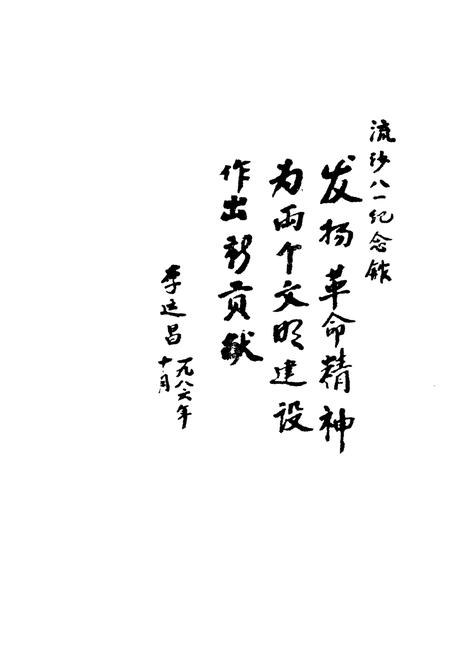 流沙八一纪念馆
发扬革命精神
为两个文明建设
作出新贡献
李运昌
一九八六年
十月